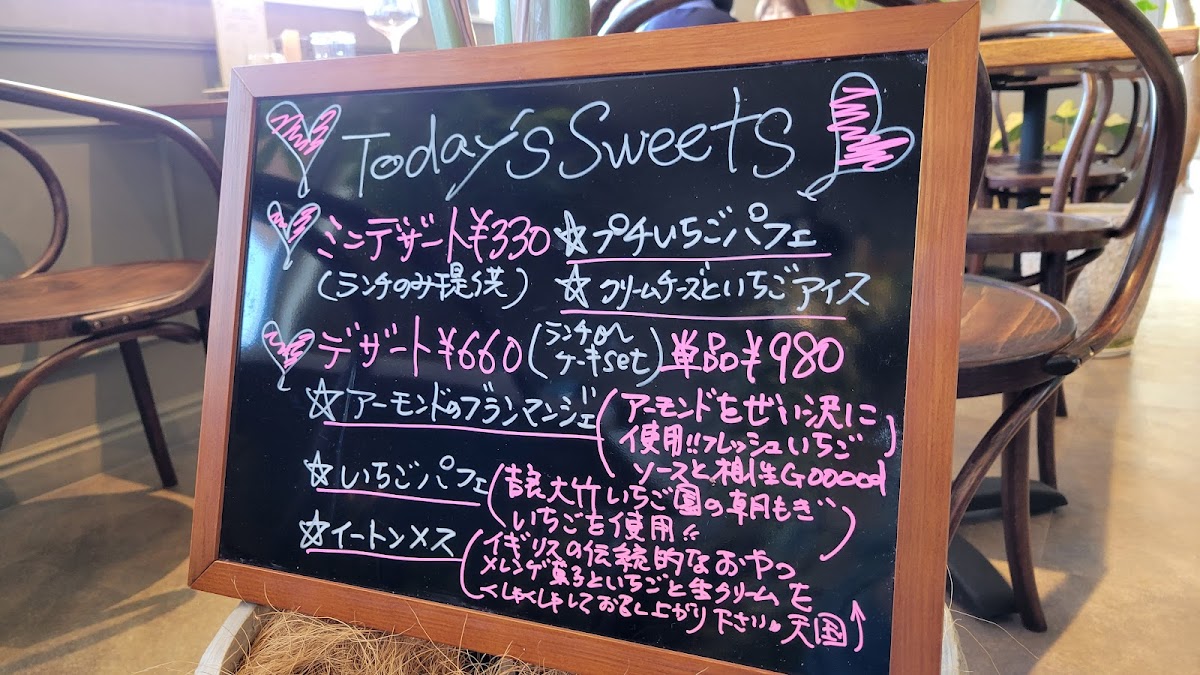 Today's Sweets
ミニデザート¥330
(ランチのみ提供)
☆プチいちごパフェ
☆クリームチーズといちごアイス
デザート¥660(ランチor ケーキset)単品¥980
☆アーモンドのブランマンジェ
(アーモンドをぜい沢に
使用!!フレッシュいちご
ソースと相性Gooood)
☆いちごパフェ
(大竹いちご園の朝もぎ
いちごを使用!!)
☆イートンメス
(イギリスの伝統的なおやつ
メレンゲ菓子といちごと生クリームを
くしゃくしゃしてお召し上がり下さい。天国↑)